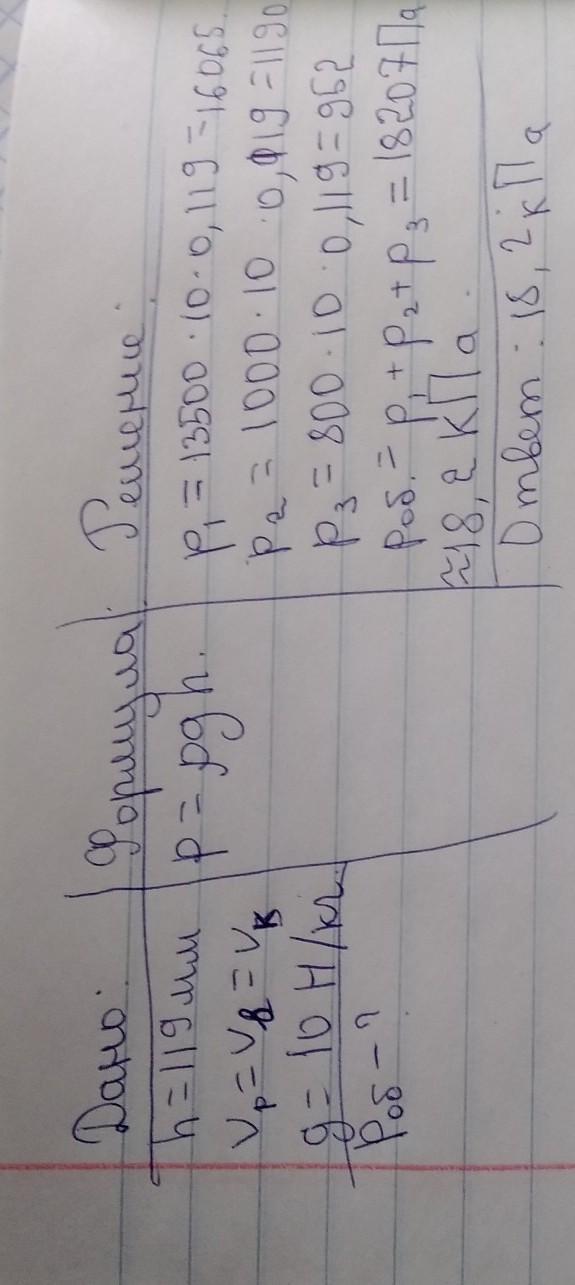 Дано:
h = 119 мм
Vр = Vв = Vк
g = 10 Н/кг
Pоб - ?
Формула:
p = ρgh.
Решение:
p₁ = 13500 · 10 · 0,119 = 16065.
p₂ = 1000 · 10 · 0,119 = 1190
p₃ = 800 · 10 · 0,119 = 952
Pоб. = p₁ + p₂ + p₃ = 18207 Па
≈ 18,2 кПа.
Ответ: 18,2 кПа